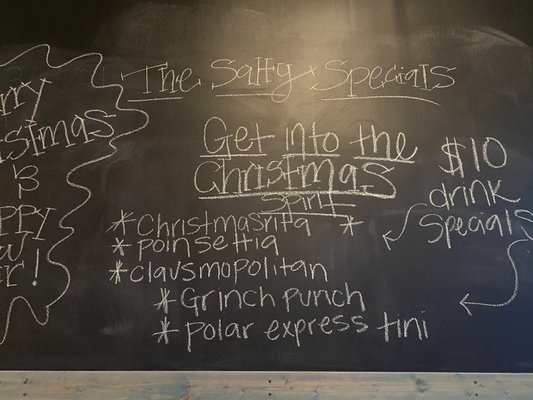 The Salty Specials
Get into the
Christmas
Spirit
*Christmasrita *
*poinsettia
*clausmopolitan
*Grinch punch
*polar express tini
$10
drink
specials
rry
istmas
&
ppy
w
r!